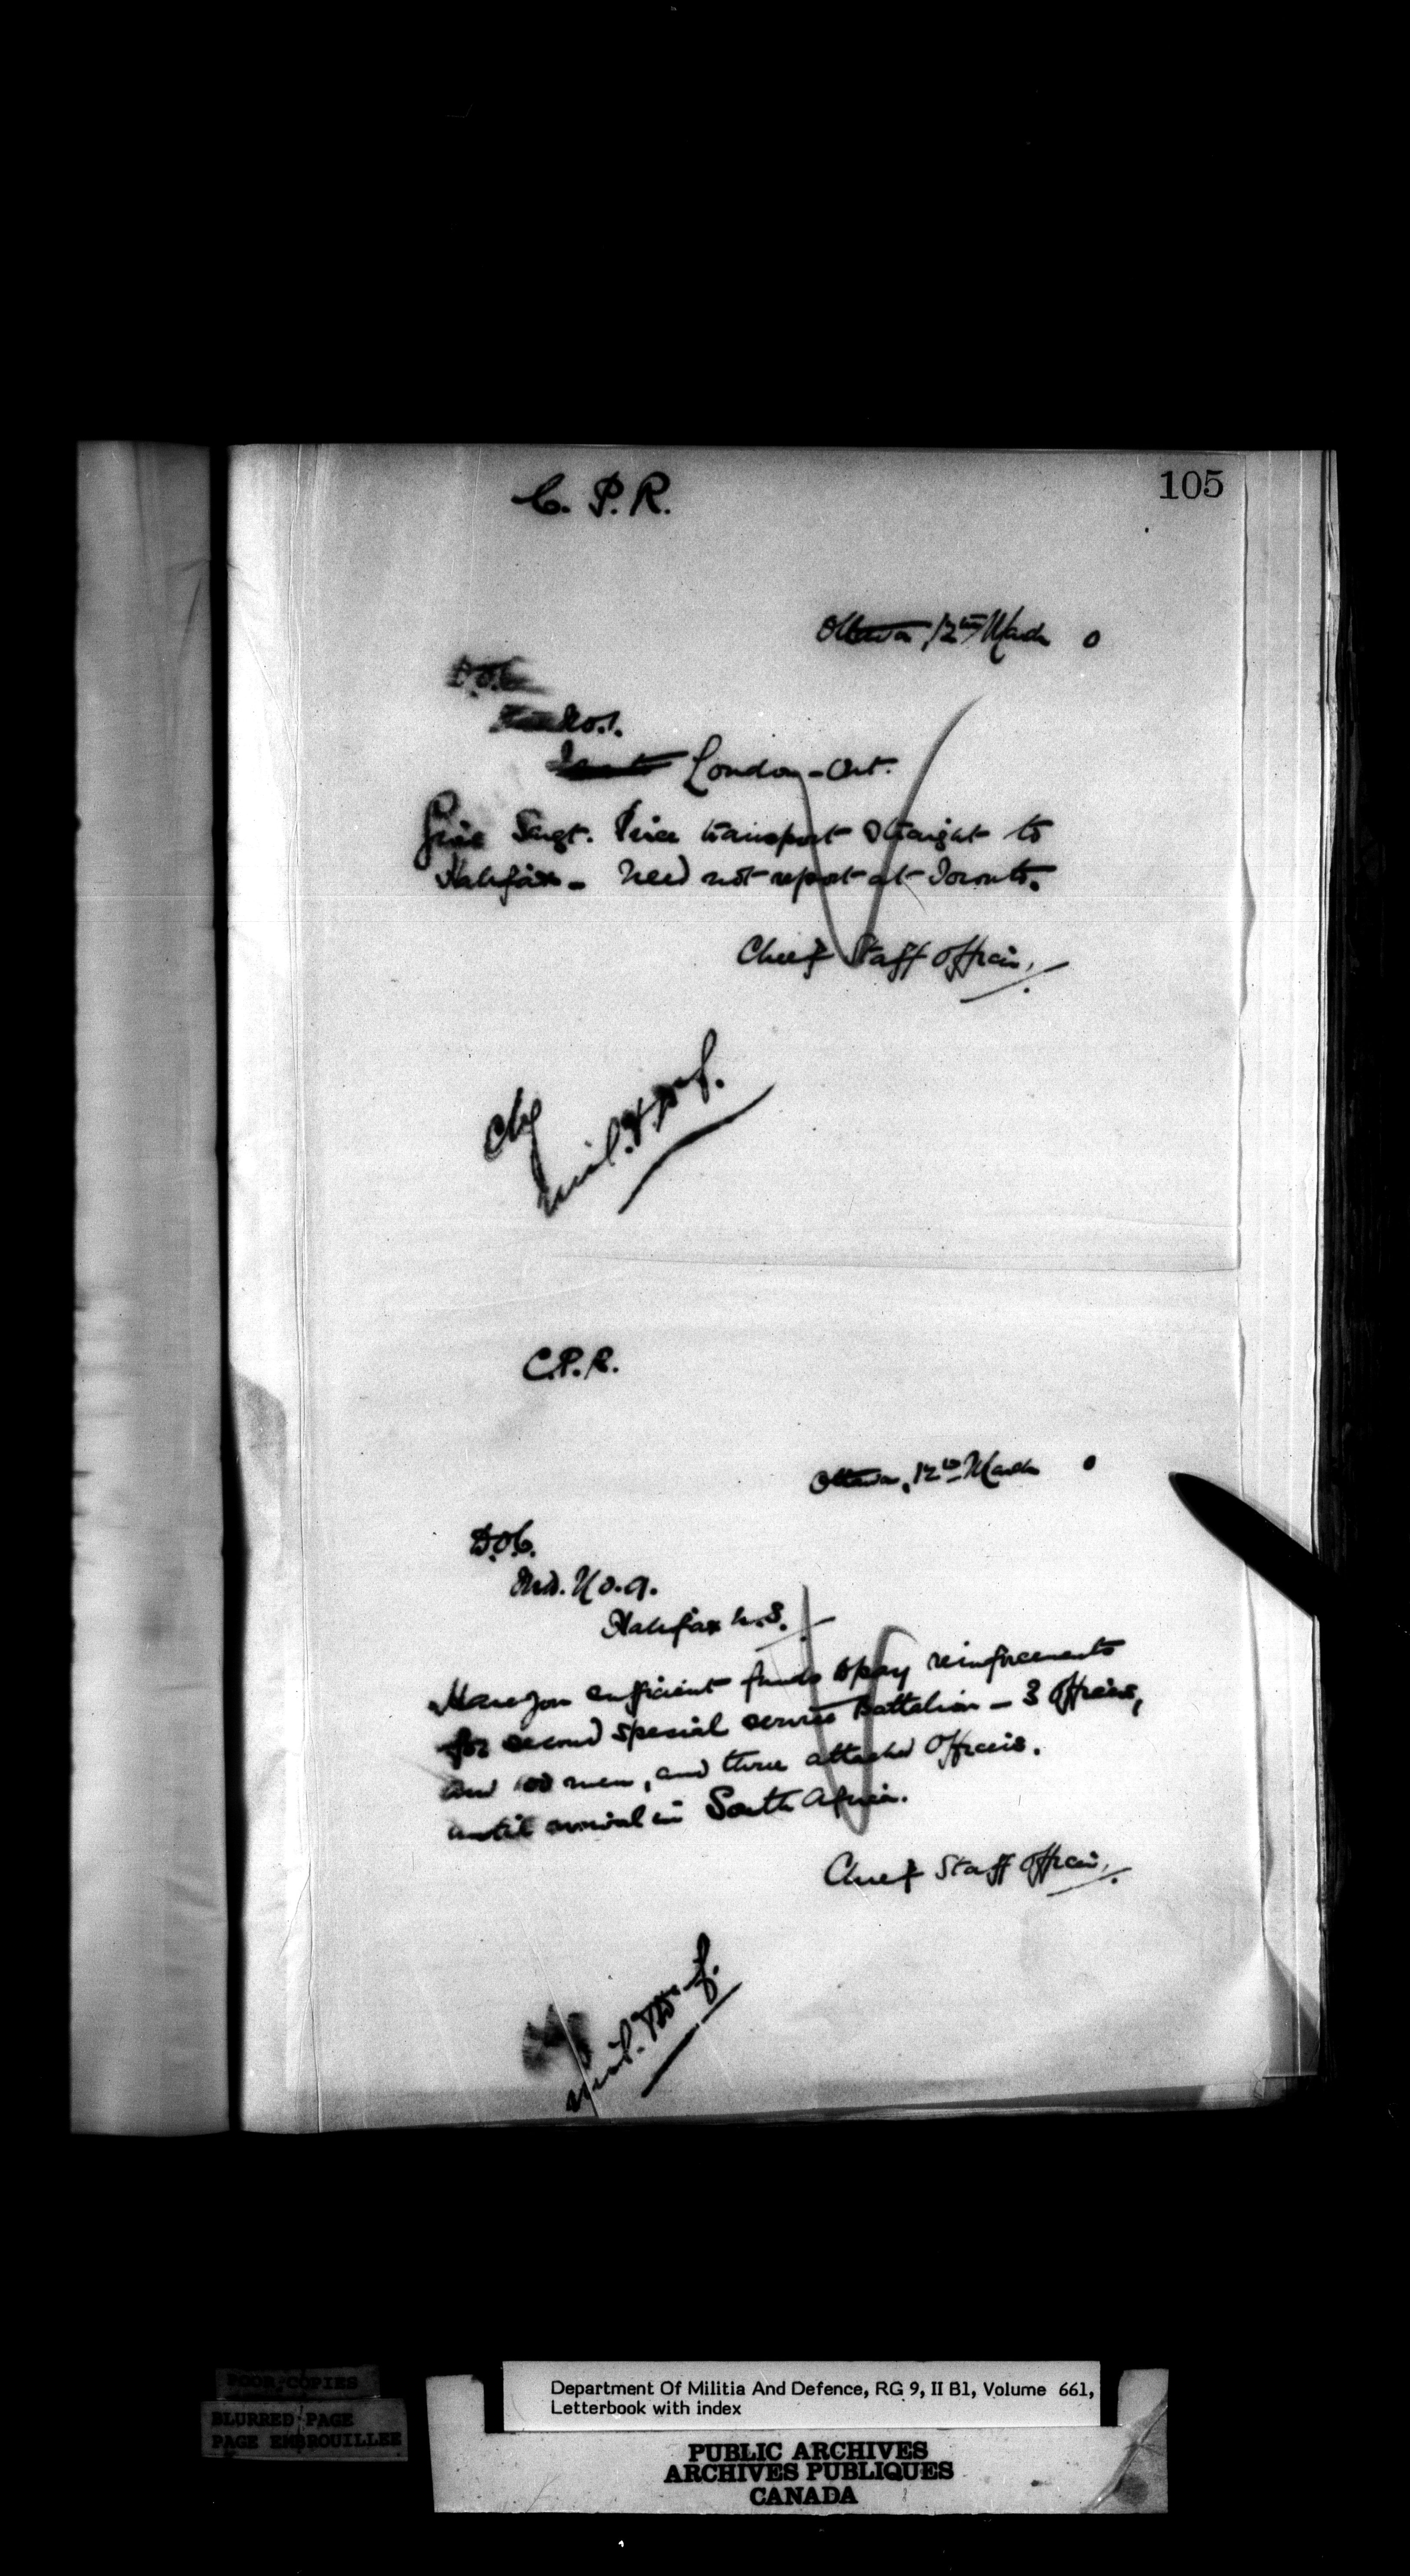 105
C. P. R.
Ottawa, 12th March 0
D.O.C.
No. 1.
London - Ont.
Give Sergt. Price transport straight to
Halifax - need not report at Toronto.
Chief Staff Officer,
Chg
Mil. & Def.
C.P.R.
Ottawa, 12th March 0
D.O.C.
M.D. No. 9.
Halifax N.S.
Have you sufficient funds to pay reinforcements
for second special service Battalion - 3 Officers,
and 100 men, and three attached Officers.
until arrival in South Africa.
Chief Staff Officer,
Mil. & Def.
POOR COPIES
BLURRED PAGE
PAGE EMBROUILLEE
Department Of Militia And Defence, RG 9, II B1, Volume 661,
Letterbook with index
PUBLIC ARCHIVES
ARCHIVES PUBLIQUES
CANADA